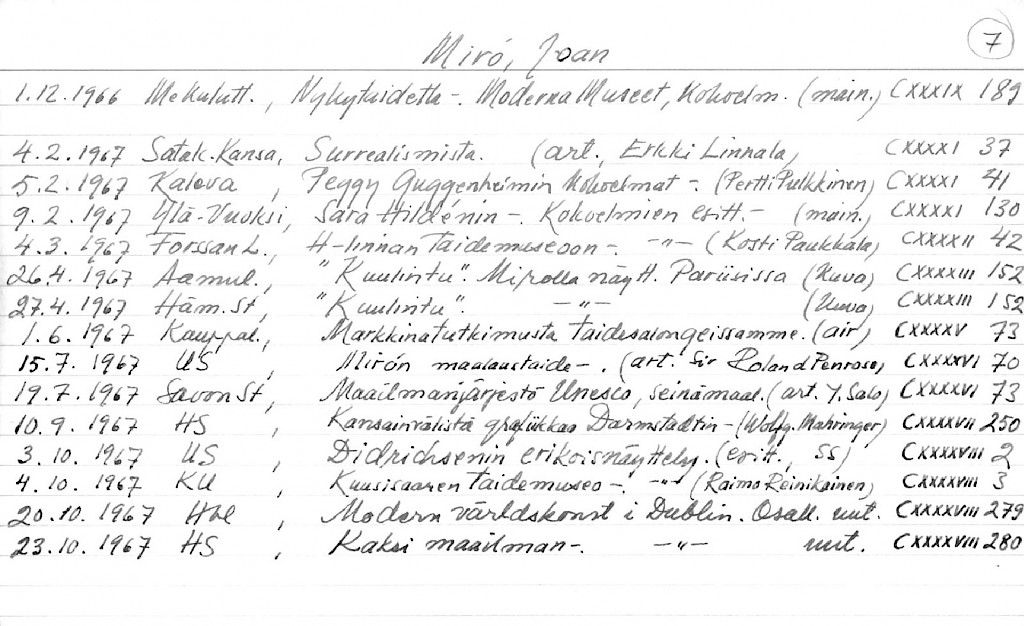 7
Miró, Joan
1.12.1966 Me kulutt., Nykytaidetta -. Moderna Museet, Kokoelm. (main.) CXXXIX 189
4.2.1967 Satak.Kansa, Surrealismista. (art., Erkki Linnala, CXXXXI 37
5.2.1967 Kaleva , Peggy Guggenheimin kokoelmat -. (Pertti Pulkkinen) CXXXXI 41
9.2.1967 Ylä-Vuoksi, Sara Hildénin -. Kokoelmien esitt.- (main.) CXXXXI 130
4.3.1967 Forssan L., H-linnan taidemuseoon -. -"- (Kosti Paukkala) CXXXXII 42
26.4.1967 Aamul., "Kuulintu". Mirolla näytt. Pariisissa (kuva) CXXXXIII 152
27.4.1967 Häm.St , "Kuulintu". -"- (kuva) CXXXXIII 152
1.6.1967 Kauppal., Markkinatutkimusta taidesalongeissamme. (air) CXXXXV 73
15.7.1967 US , Mirón maalaustaide -. (art. Sir Roland Penrose) CXXXXVI 70
19.7.1967 Savon St, Maailmanjärjestö Unesco, seinämaal. (art. Y. Salo) CXXXXVI 73
10.9.1967 HS , Kansainvälistä grafiikkaa Darmstadtin - (Wolfg. Mahringer) CXXXXVII 250
3.10.1967 US , Didrichsenin erikoisnäyttely. (esitt., SS) CXXXXVIII 2
4.10.1967 KU , Kuusisaaren taidemuseo -. -"- (Raimo Reinikainen) CXXXXVIII 3
20.10.1967 Hbl , Modern världskonst i Dublin. Osall. uut. CXXXXVIII 279
23.10.1967 HS , Kaksi maailman -. -"- uut. CXXXXVIII 280